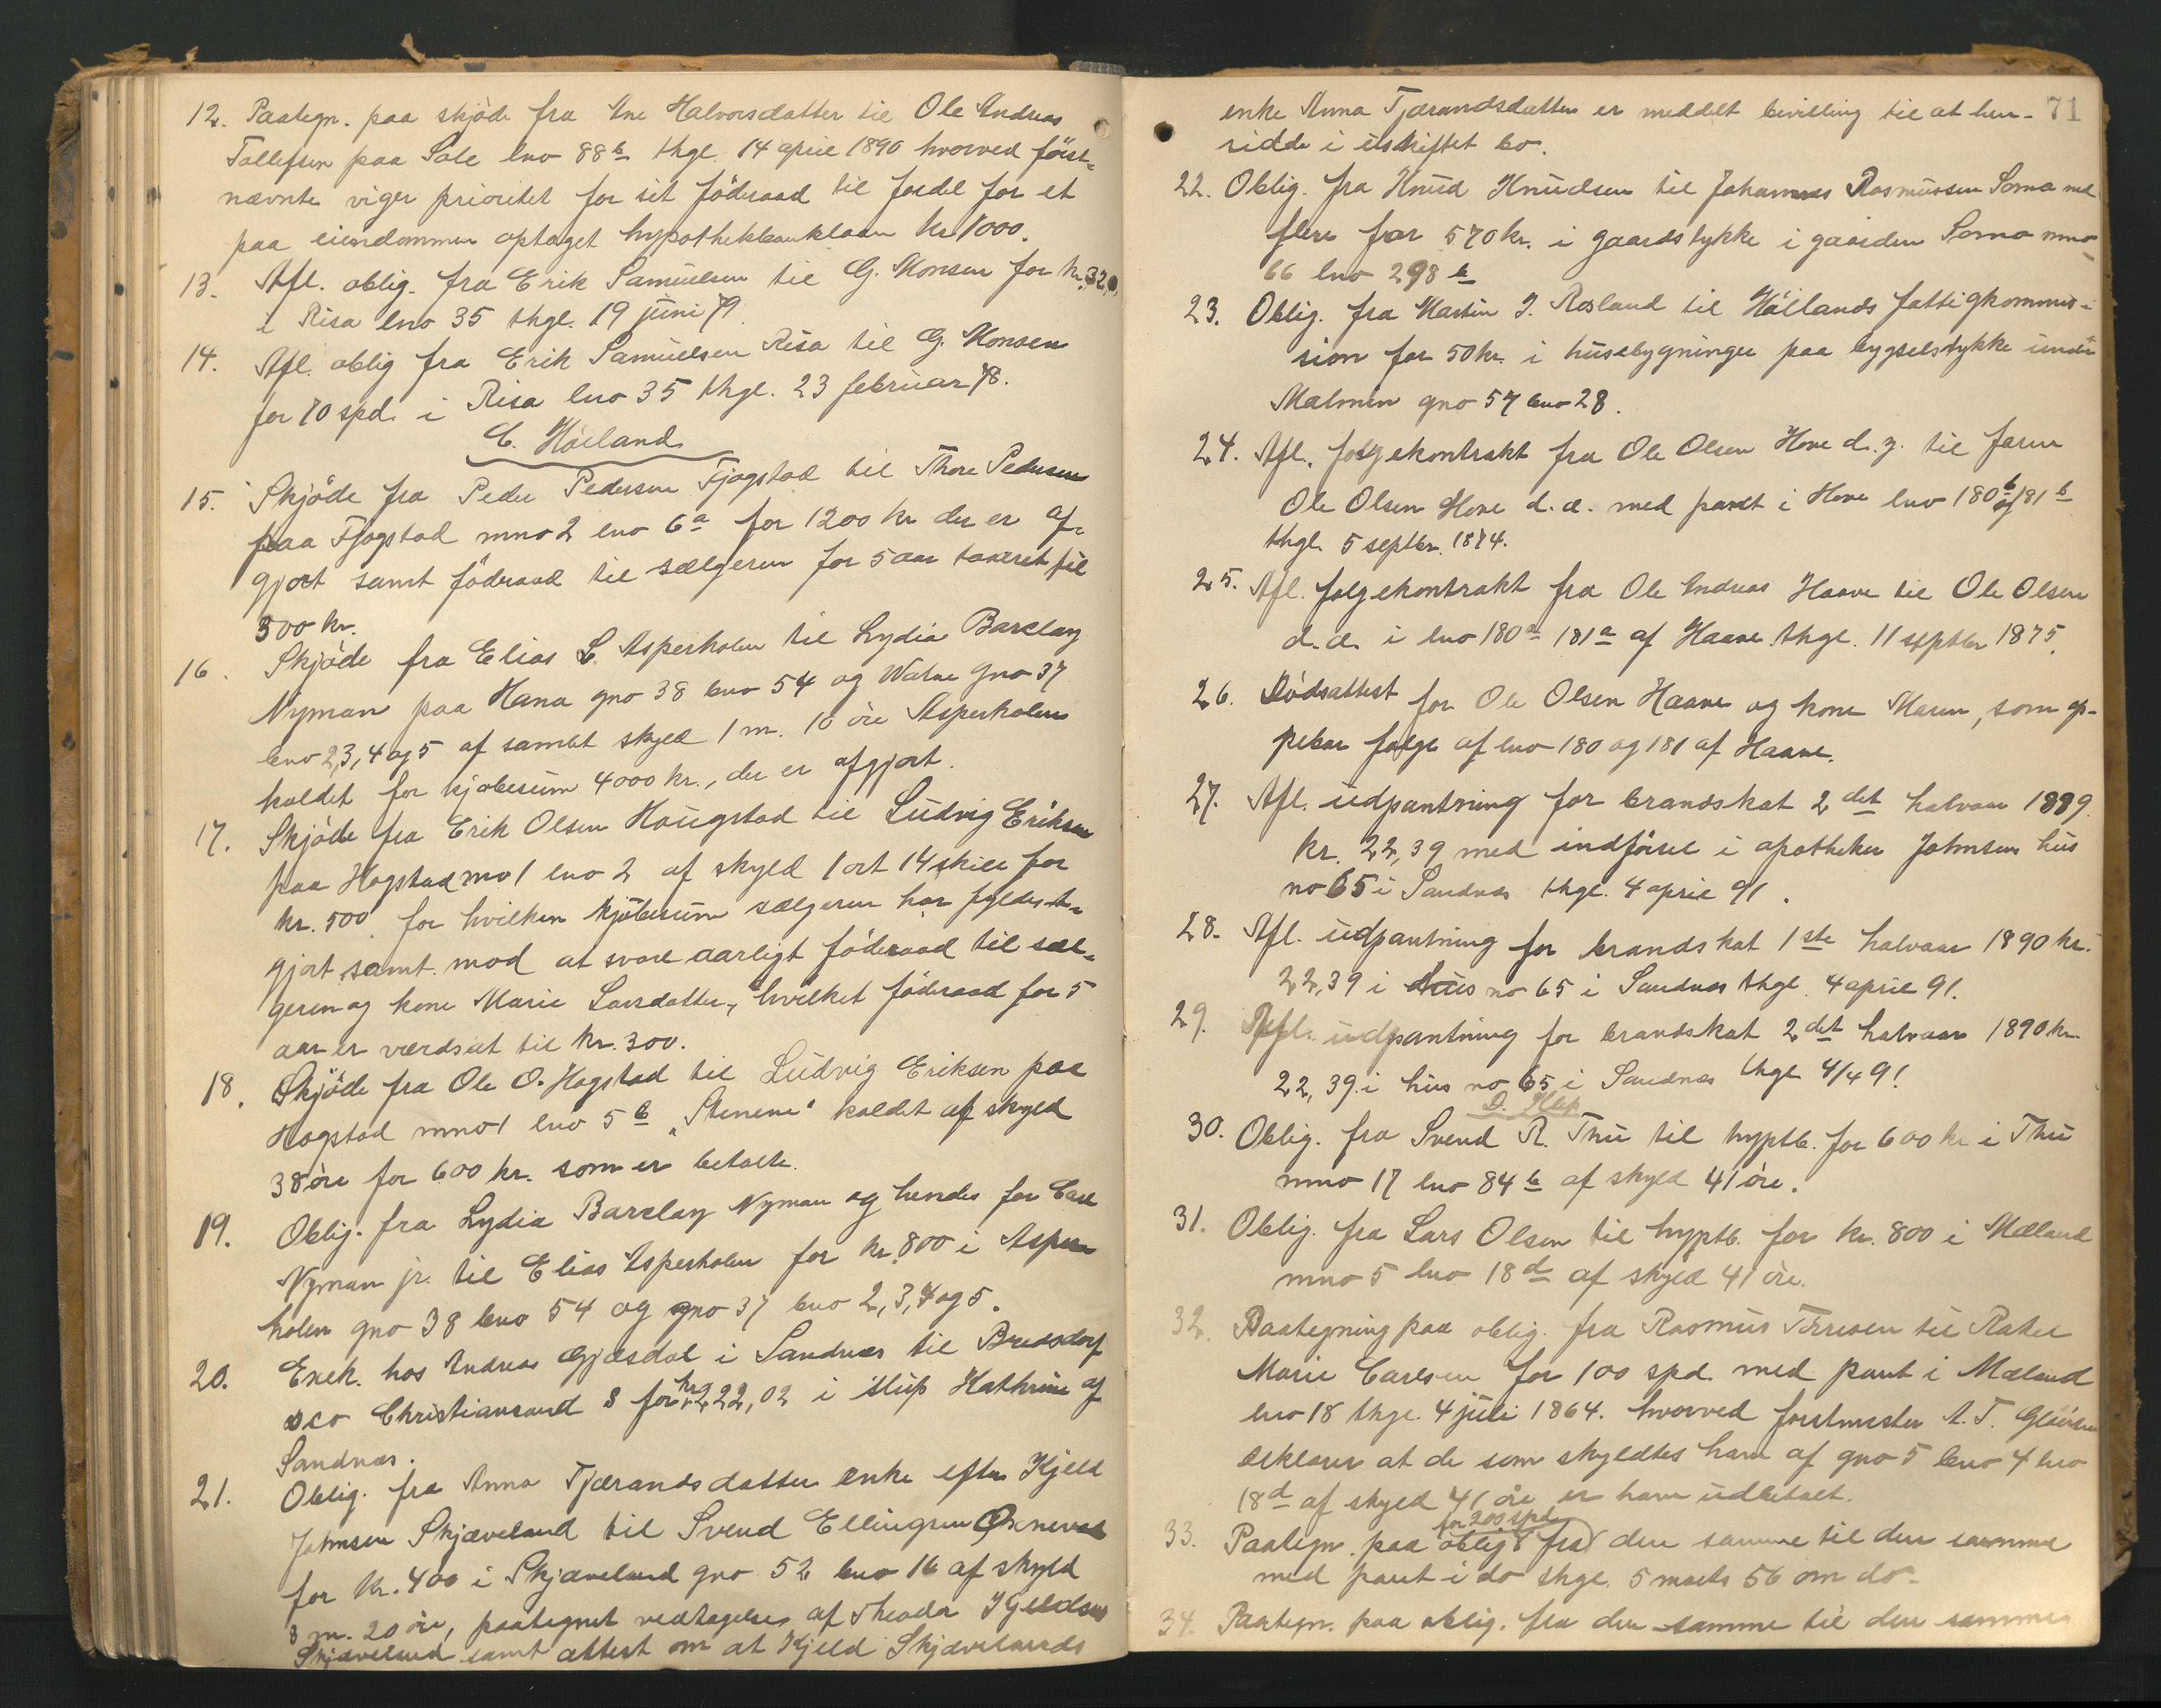 12. Paategn. paa skjøde fra Ane Halvorsdatter til Ole Andreas
Tollefsen paa Sole lno 88b thgl. 14 april 1890 hvorved først-
nævnte viger prioritet for sit føderaad til fordel for et
paa eiendommen optaget hypothekbanklaan kr. 1000.
13. Afl. oblig. fra Erik Samuelsen til G. Monsen for kr. 320,
i Risa lno 35 thgl. 19 juni 79.
14. Afl. oblig fra Erik Samuelsen Risa til G. Monsen
for 70 spd. i Risa lno 35 thgl. 23 februar 78.
C. Høiland
15. Skjøde fra Peder Pedersen Fjogstad til Thore Pedersen
paa Fjogstad mno 2 lno 6a for 1200 kr der er af-
gjort samt føderaad til sælgeren for 5 aar taxeret til
500 kr.
16. Skjøde fra Elias L. Asperholen til Lydia Barclay
Nyman paa Hana gno 38 bno 54 og Watne gno 37
bno 2,3,4 og 5 af samlet skyld 1 m. 10 øre Asperholen
kaldet for kjøbesum 4000 kr., der er afgjort.
17. Skjøde fra Erik Olsen Haugstad til Ludvig Eriksen
paa Hogstad mno 1 lno 2 af skyld 1 ort 14 skill for
kr. 500 for hvilken kjøbesum sælgeren har fyldest-
gjort samt mod at svare aarligt føderaad til sæl-
geren og kone Marie Larsdatter, hvilket føderaad for 5
aar er værdsat til kr. 300.
18. Skjøde fra Ole O. Hogstad til Ludvig Eriksen paa
Hogstad mno 1 lno 5b „Stenene“ kaldet af skyld
38 øre for 600 kr. som er betalte.
19. Oblig. fra Lydia Barclay Nyman og hendes far Carl
Nyman jr. til Elias Asperholen for kr. 800 i Asper-
holen gno 38 bno 54 og gno 37 bno 2,3,4 og 5.
20. Exek. hos Andreas Gjæsdal i Sandnæs til Bredsdorf
& co Christiansand S for kr 222,02 i slup Kathrine af
Sandnæs.
21. Oblig. fra Anna Tjærandsdatter enke efter Kjeld
Johnsen Skjæveland til Svend Ellingsen Øxnevad
for kr. 400 i Skjæveland gno 52 bno 16 af skyld
8 m. 20 øre, paategnet vedtagelse af Theodor Kjeldsen
Skjæveland samt attest om at Kjeld Skjævelands
71
enke Anna Tjærandsdatter er meddelt bevilling til at hen-
sidde i uskiftet bo.
22. Oblig. fra Knud Knudsen til Johannes Rasmussen Soma med
flere for 570 kr. i gaardstykke i gaarden Soma mno
66 lno 298b
23. Oblig. fra Martin J. Rosland til Høilands fattigkommis-
sion for 50 kr. i husebygninger paa bygselstykke under
Malmen gno 57 bno 28.
24. Afl. følgekontrakt fra Ole Olsen Hove d. y. til faren
Ole Olsen Hove d. æ. med pant i Hove lno 180b og 181b
thgl. 5 septbr. 1874.
25. Afl. følgekontrakt fra Ole Andreas Haave til Ole Olsen
d. æ. i lno 180a 181a af Haave thgl. 11 septbr 1875.
26. Dødsattest for Ole Olsen Haave og kone Maren, som op-
pebar følge af lno 180 og 181 af Haave.
27. Afl. udpantning for brandskat 2det halvaar 1889
kr. 22,39 med indførsel i apotheker Johnsens hus
no 65 i Sandnæs thgl. 4 april 91.
28. Afl. udpantning for brandskat 1ste halvaar 1890 kr.
22,39 i hus no 65 i Sandnæs thgl. 4 april 91.
29. Afl. udpantning for brandskat 2det halvaar 1890 kr.
22,39 i hus no 65 i Sandnæs thgl 4/4 91
D. Klep
30. Oblig. fra Svend R. Thu til hyptb. for 600 kr i Thu
mno 17 lno 84b af skyld 41 øre.
31. Oblig. fra Lars Olsen til hyptb. for kr. 800 i Mæland
mno 5 lno 18d af skyld 41 øre.
32. Paategning paa oblig. fra Rasmus Tørresen til Rakel
Marie Carlsen for 100 spd. med pant i Mæland
lno 18 thgl. 4 juli 1864. hvorved forstmester A. T. Gløersen
erklærer at de som skyldtes ham af gno 5 bno 4 lno
18d af skyld 41 øre er ham udbetalt.
33. Paategn. paa oblig for 200 spd. fra den samme til den samme
med pant i do thgl. 5 marts 56 om do.
34. Paategn. paa oblig. fra den samme til den samme